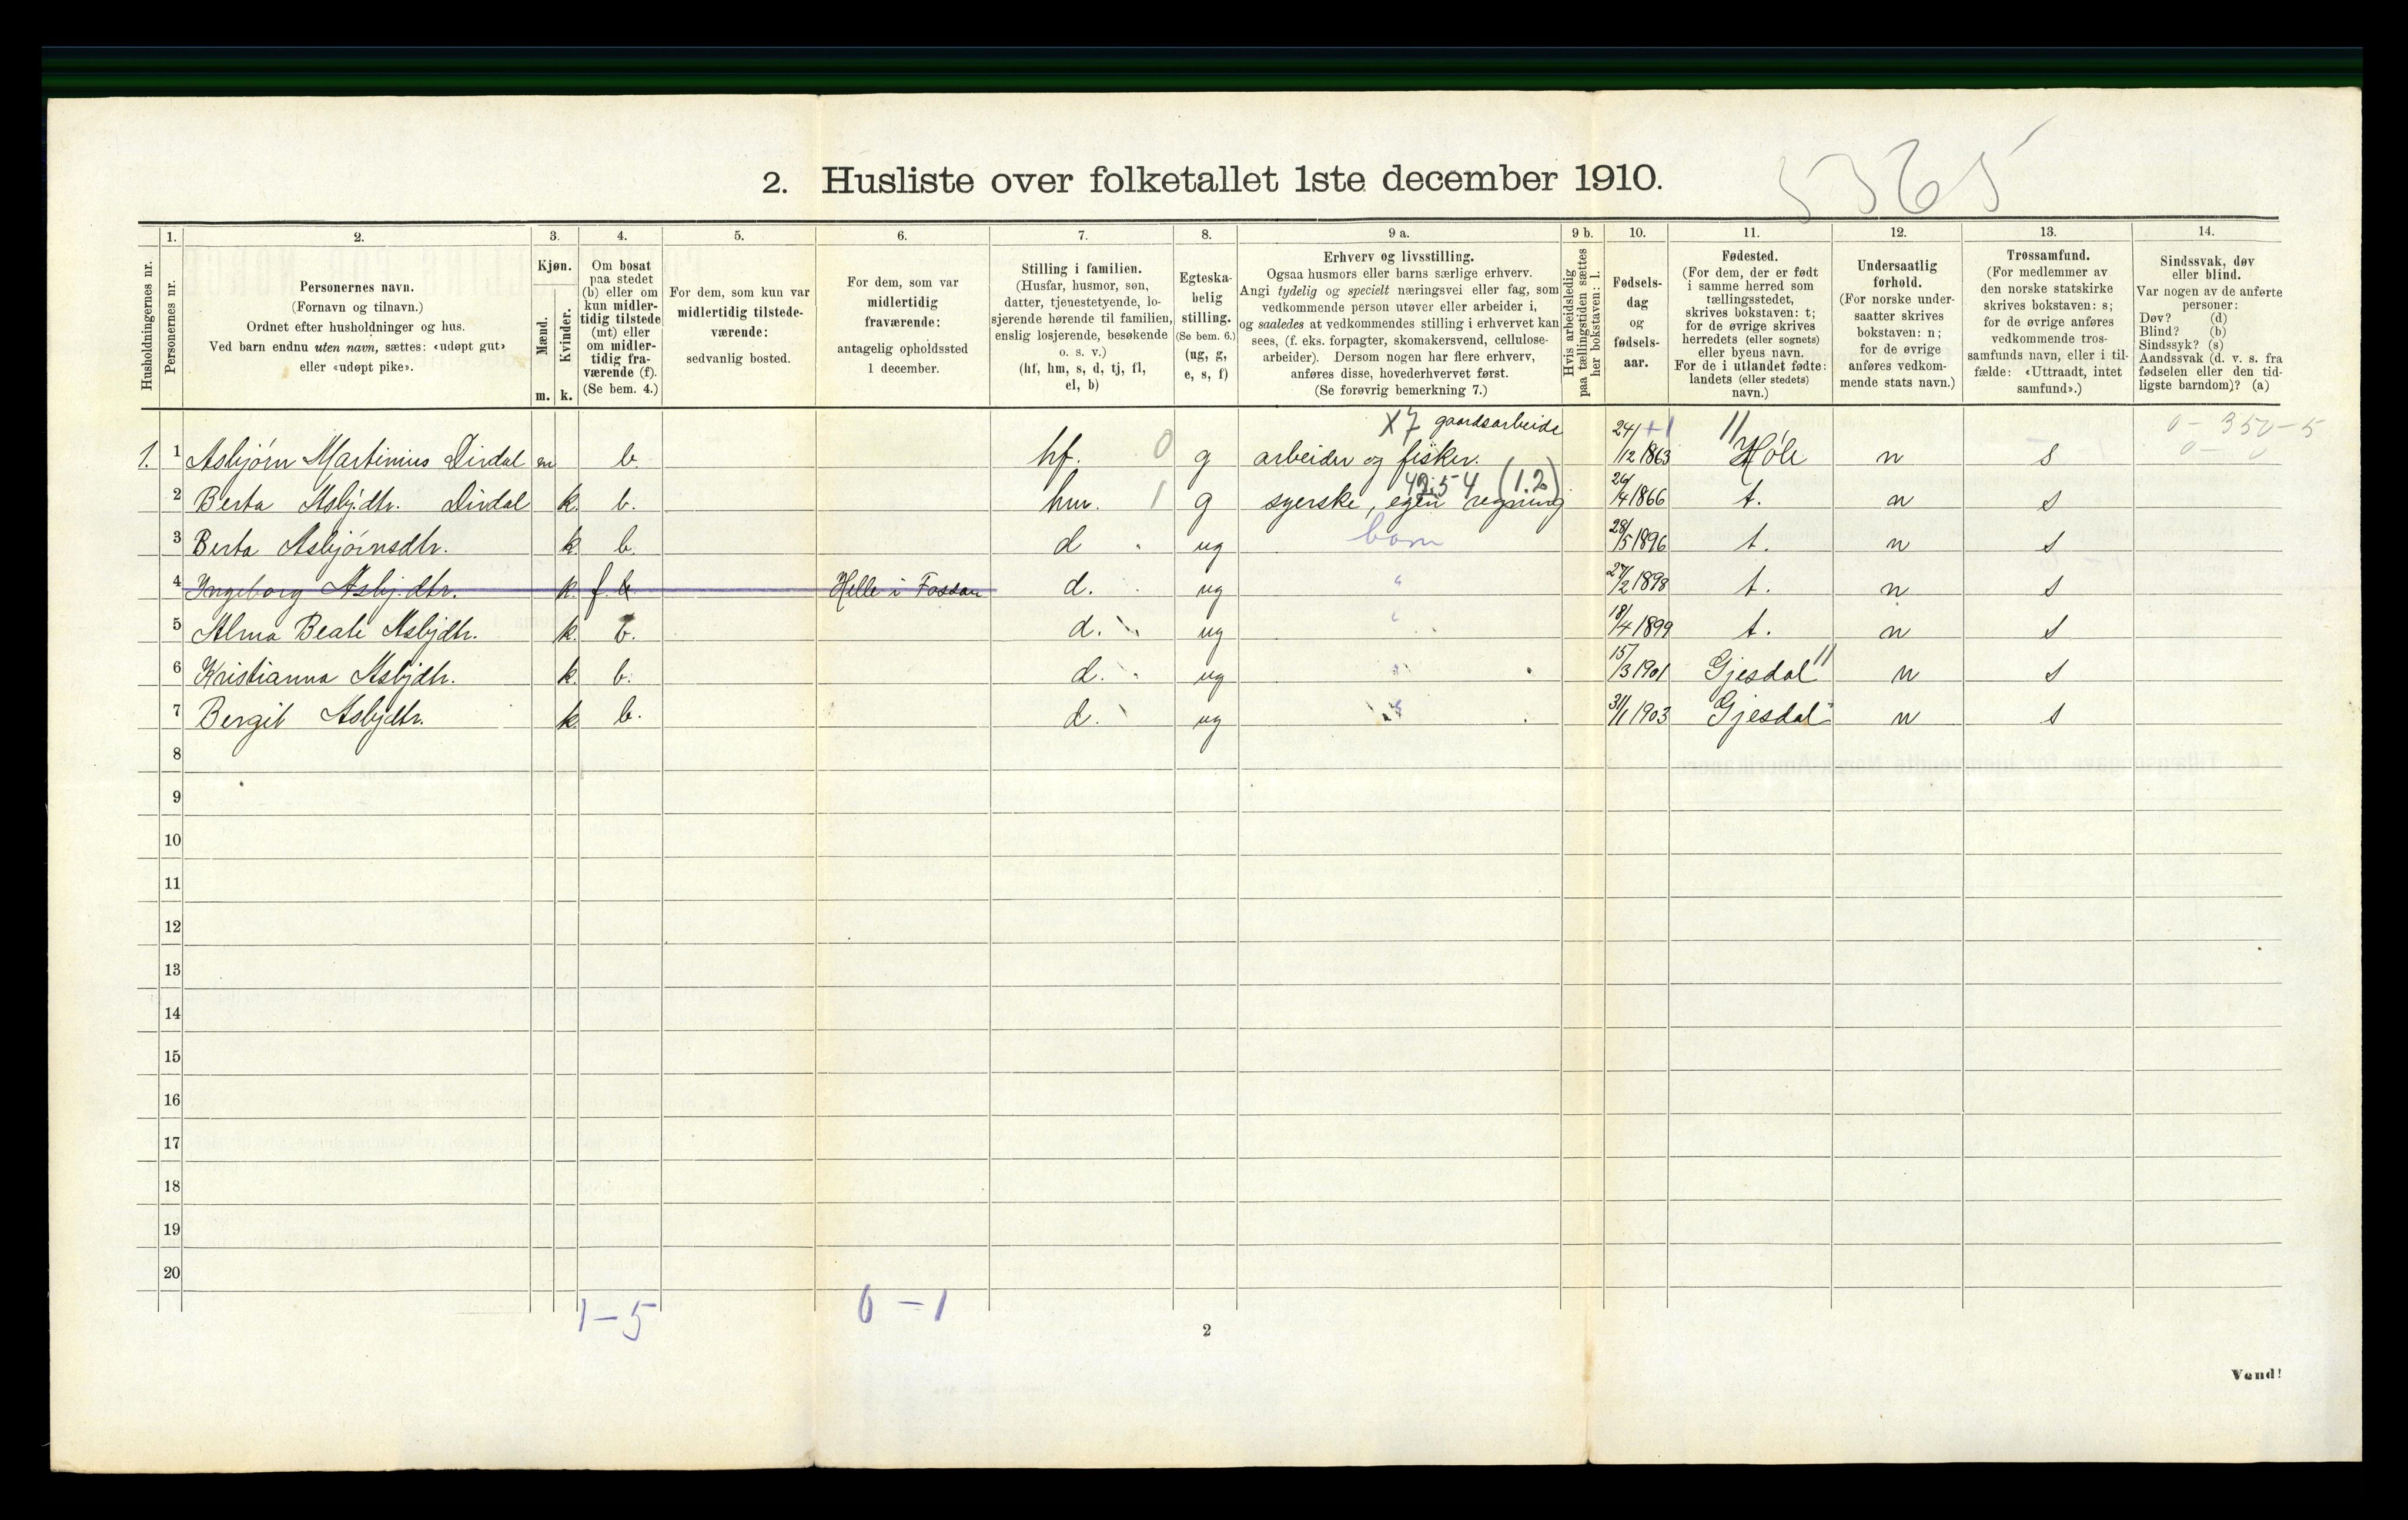 5365
2. Husliste over folketallet 1ste december 1910.
Husholdningernes nr.
1.
Personernes nr.
2.
Personernes navn.
(Fornavn og tilnavn.)
Ordnet efter husholdninger og hus.
Ved barn endnu uten navn, sættes: «udøpt gut»
eller «udøpt pike».
3.
Kjøn.
Mænd.
Kvinder.
m. k.
4.
Om bosat
paa stedet
(b) eller om
kun midler-
tidig tilstede
(mt) eller
om midler-
tidig fra-
værende (f).
(Se bem. 4.)
5.
For dem, som kun var
midlertidig tilstede-
værende:
sedvanlig bosted.
6.
For dem, som var
midlertidig
fraværende:
antagelig opholdssted
1 december.
7.
Stilling i familien.
(Husfar, husmor, søn,
datter, tjenestetyende, lo-
sjerende hørende til familien,
enslig losjerende, besøkende
o. s. v.)
(hf, hm, s, d, tj, fl,
el, b)
8.
Egteska-
belig
stilling.
(Se bem. 6.)
(ug, g,
e, s, f)
9 a.
Erhverv og livsstilling.
Ogsaa husmors eller barns særlige erhverv.
Angi tydelig og specielt næringsvei eller fag, som
vedkommende person utøver eller arbeider i,
og saaledes at vedkommendes stilling i erhvervet kan
sees, (f. eks. forpagter, skomakersvend, cellulose-
arbeider). Dersom nogen har flere erhverv,
anføres disse, hovederhvervet først.
(Se forøvrig bemerkning 7.)
9 b.
Hvis arbeidsledig
paa tællingstiden sættes
her bokstaven: l.
10.
Fødsels-
dag
og
fødsels-
aar.
11.
Fødested.
(For dem, der er født
i samme herred som
tællingsstedet,
skrives bokstaven: t;
for de øvrige skrives
herredets (eller sognets)
eller byens navn.
For de i utlandet fødte:
landets (eller stedets)
navn.)
12.
Undersaatlig
forhold.
(For norske under-
saatter skrives
bokstaven: n;
for de øvrige
anføres vedkom-
mende stats navn.)
13.
Trossamfund.
(For medlemmer av
den norske statskirke
skrives bokstaven: s;
for de øvrige anføres
vedkommende tros-
samfunds navn, eller i til-
fælde: «Uttraadt, intet
samfund».)
14.
Sindssvak, døv
eller blind.
Var nogen av de anførte
personer:
Døv? (d)
Blind? (b)
Sindssyk? (s)
Aandssvak (d. v. s. fra
fødselen eller den tid-
ligste barndom)? (a)
X7 gaardsarbeide +1 11 0 - 350 - 5
1. 1 Asbjørn Martinius Dirdal m b. hf. 0 g arbeider og fisker. 24/12 1863 Høle n s 0 - 0
42.54 (1.2)
2 Berta Asbj.dtr. Dirdal k. b. hm. 1 g syerske, egen regning 26/4 1866 t. n s
3 Berta Asbjørnsdtr. k. b. d ug barn 28/5 1896 t. n s
4 Ingeborg Asbj.dtr. k. f. b. Helle i Fossan d. ug " 27/2 1898 t. n s
5 Alma Beate Asbjdtr. k. b. d. ug " 18/4 1899 t. n s
6 Kristianna Asbjdtr. k. b. d. ug " 15/3 1901 Gjesdal 11 n s
7 Bergit Asbjdtr. k b. d. ug " 31/1 1903 Gjesdal " n s
8
9
10
11
12
13
14
15
16
17
18
19
20
1-5 0-1
2
Vend!